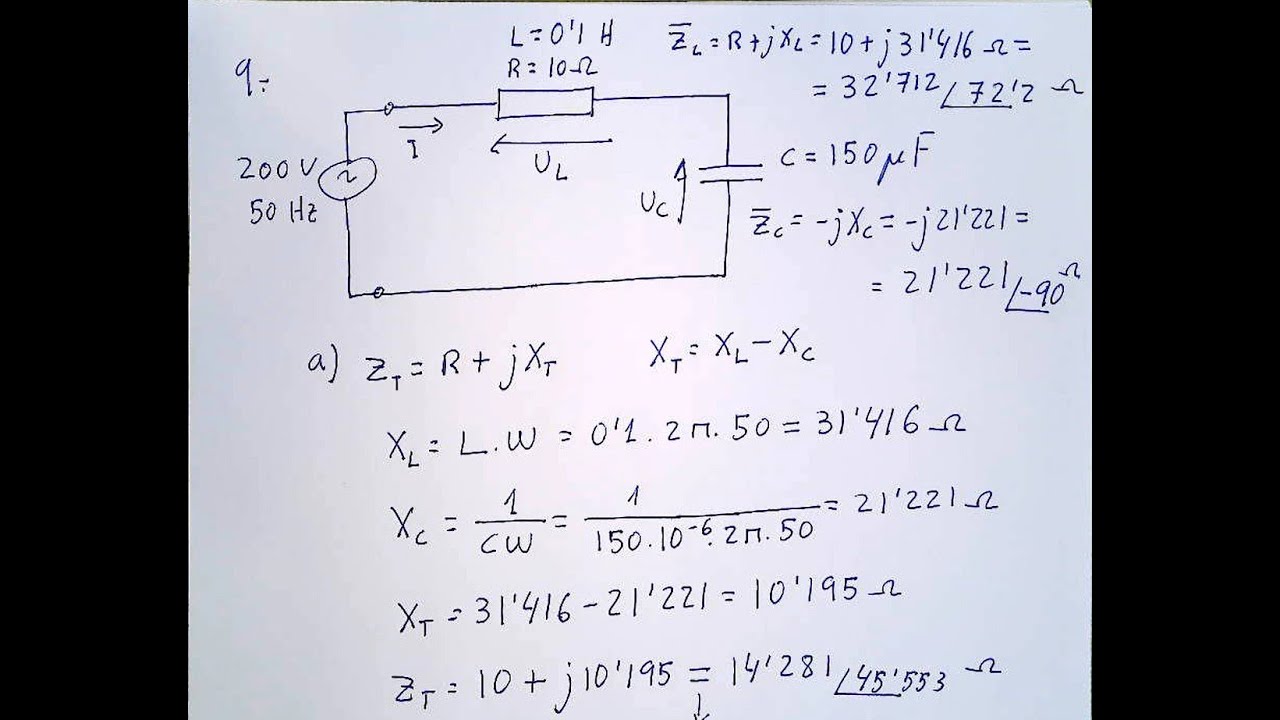 9.-
L = 0'1 H
R = 10 Ω
Z̅L = R + jXL = 10 + j31'416 Ω =
= 32'712 /72'2 Ω
200 V
50 Hz
I
UL
UC
C = 150 μF
Z̅C = -jXC = -j21'221 =
= 21'221 /-90 Ω
a) ZT = R + jXT XT = XL - XC
XL = L.W = 0'1 . 2π . 50 = 31'416 Ω
XC = 1/CW = 1/150.10⁻⁶.2π.50 = 21'221 Ω
XT = 31'416 - 21'221 = 10'195 Ω
ZT = 10 + j10'195 = 14'281 /45'553 Ω